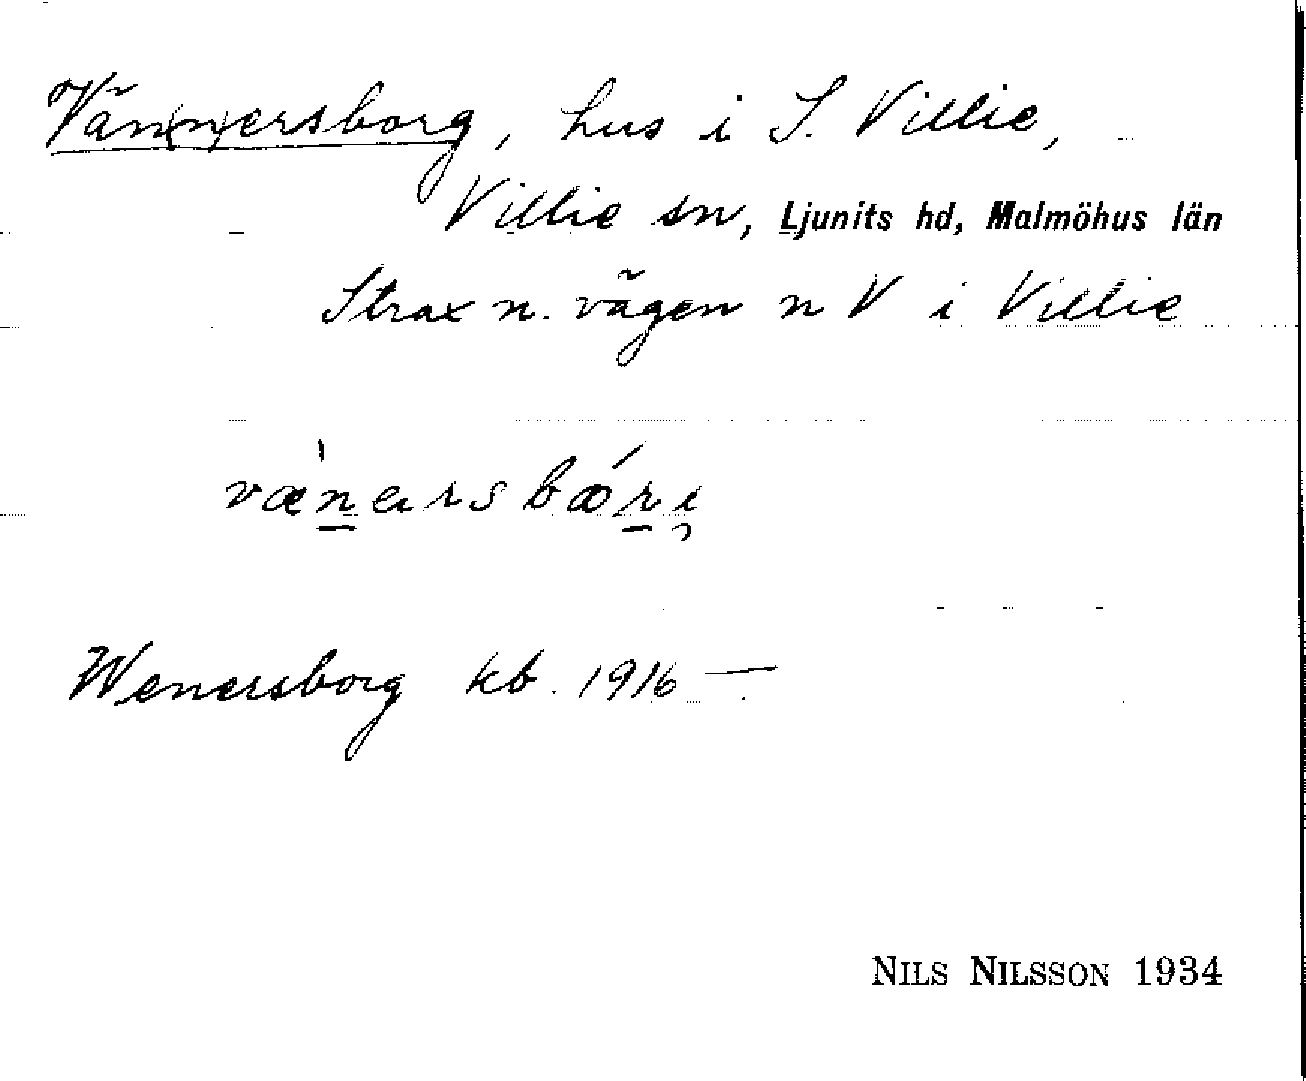 Vän(n)ersborg, hus i S. Villie,
Villie sn, Ljunits hd, Malmöhus län
Strax n. vägen n V i Villie
væ̀nersbǿri̯
Wenersborg kb. 1916 —
NILS NILSSON 1934